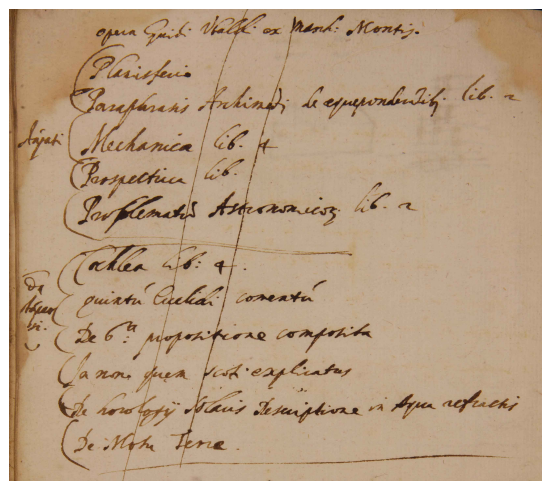 opera Guidi Vbaldi ex March: Montis.
Planisferio
Paraphrasis Archimedis de aequeponderatib; lib. 2
Mechanica lib. 4
Prospectiva lib.
Problematū Astronomicoꝝ lib. 2
Coclea lib: 4.
quintū Euclidi comentū
De 6.ta propositione composita
In non. quem scoti explicatus
De horologÿ solaris Descriptione in Aqua refractis
De Motu Terre.